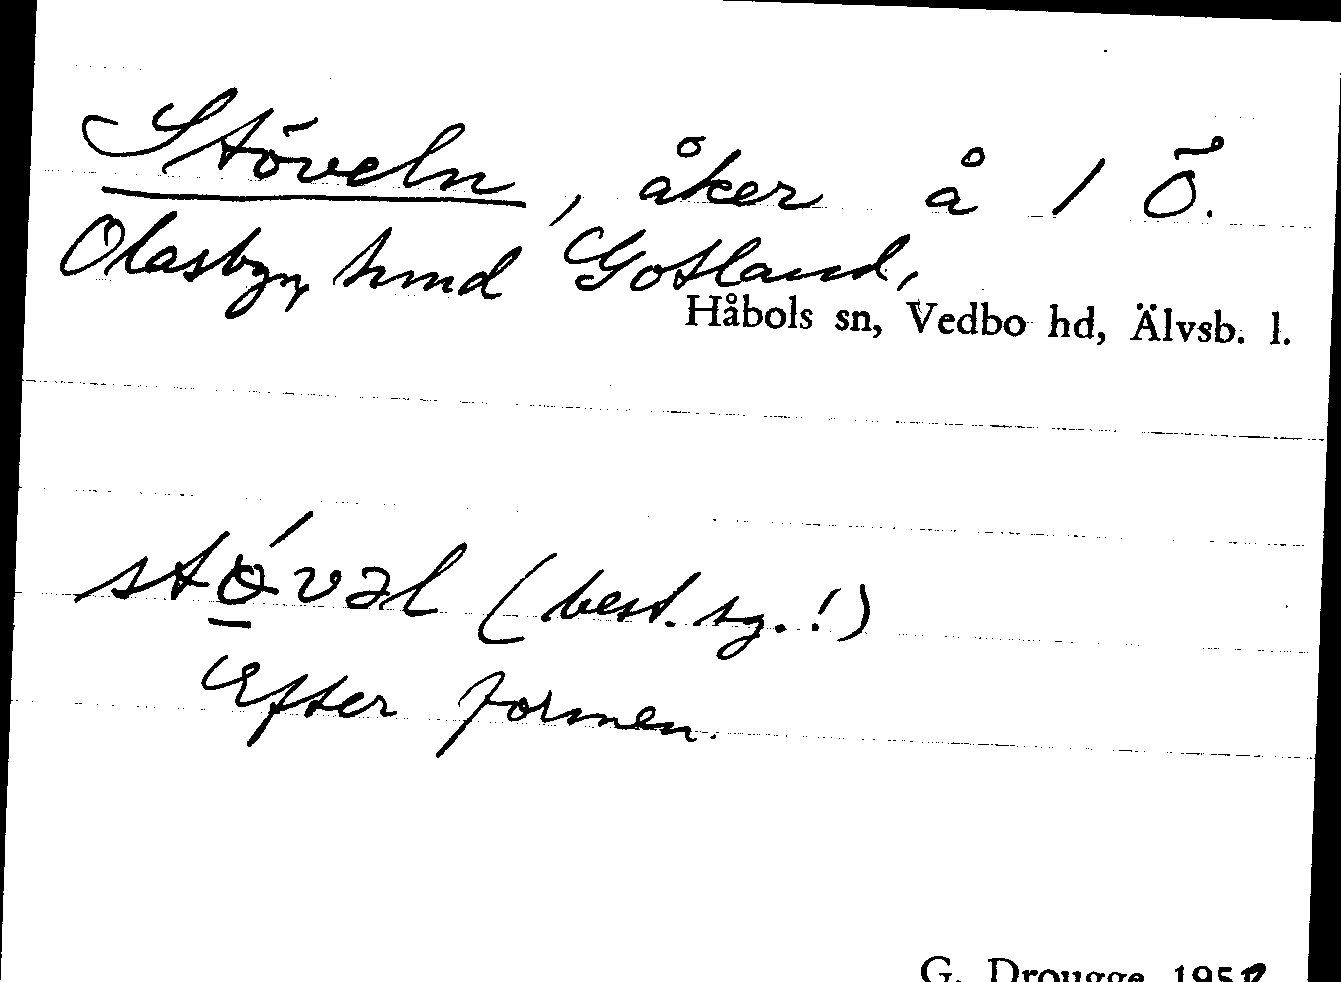 Stöveln, åker å 1 Ö.
Olasbyn, hmd Gotland,
Håbols sn, Vedbo hd, Älvsb. l.
stǿ̱vəl (best. sg.!)
Efter formen.
G. Drougge 1952